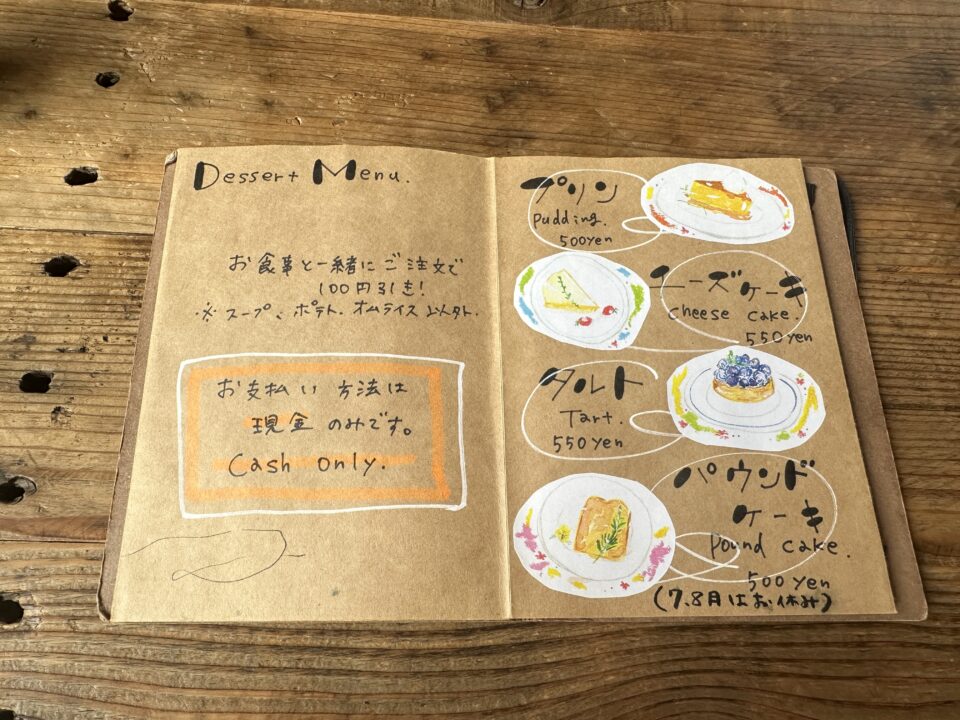 Dessert Menu.
お食事と一緒にご注文で
100円引き!
※スープ、ポテト、オムライス以外。
お支払い方法は
現金のみです。
Cash only.
プリン
pudding.
500yen
チーズケーキ
cheese cake.
550yen
タルト
Tart.
550yen
パウンド
ケーキ
pound cake.
500yen
(7、8月はお休み)